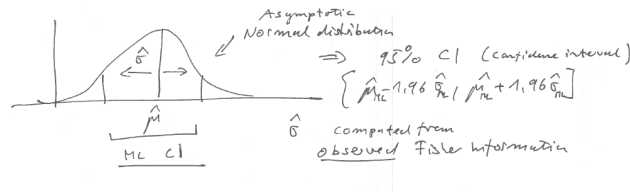 Asymptotic
Normal distribution
σ̂
⇒ 95% CI (confidene interval)
[μ̂ML - 1,96 σ̂ML, μ̂ML + 1,96 σ̂ML]
μ̂
ML CI
σ̂ computed from
observed Fisher Information